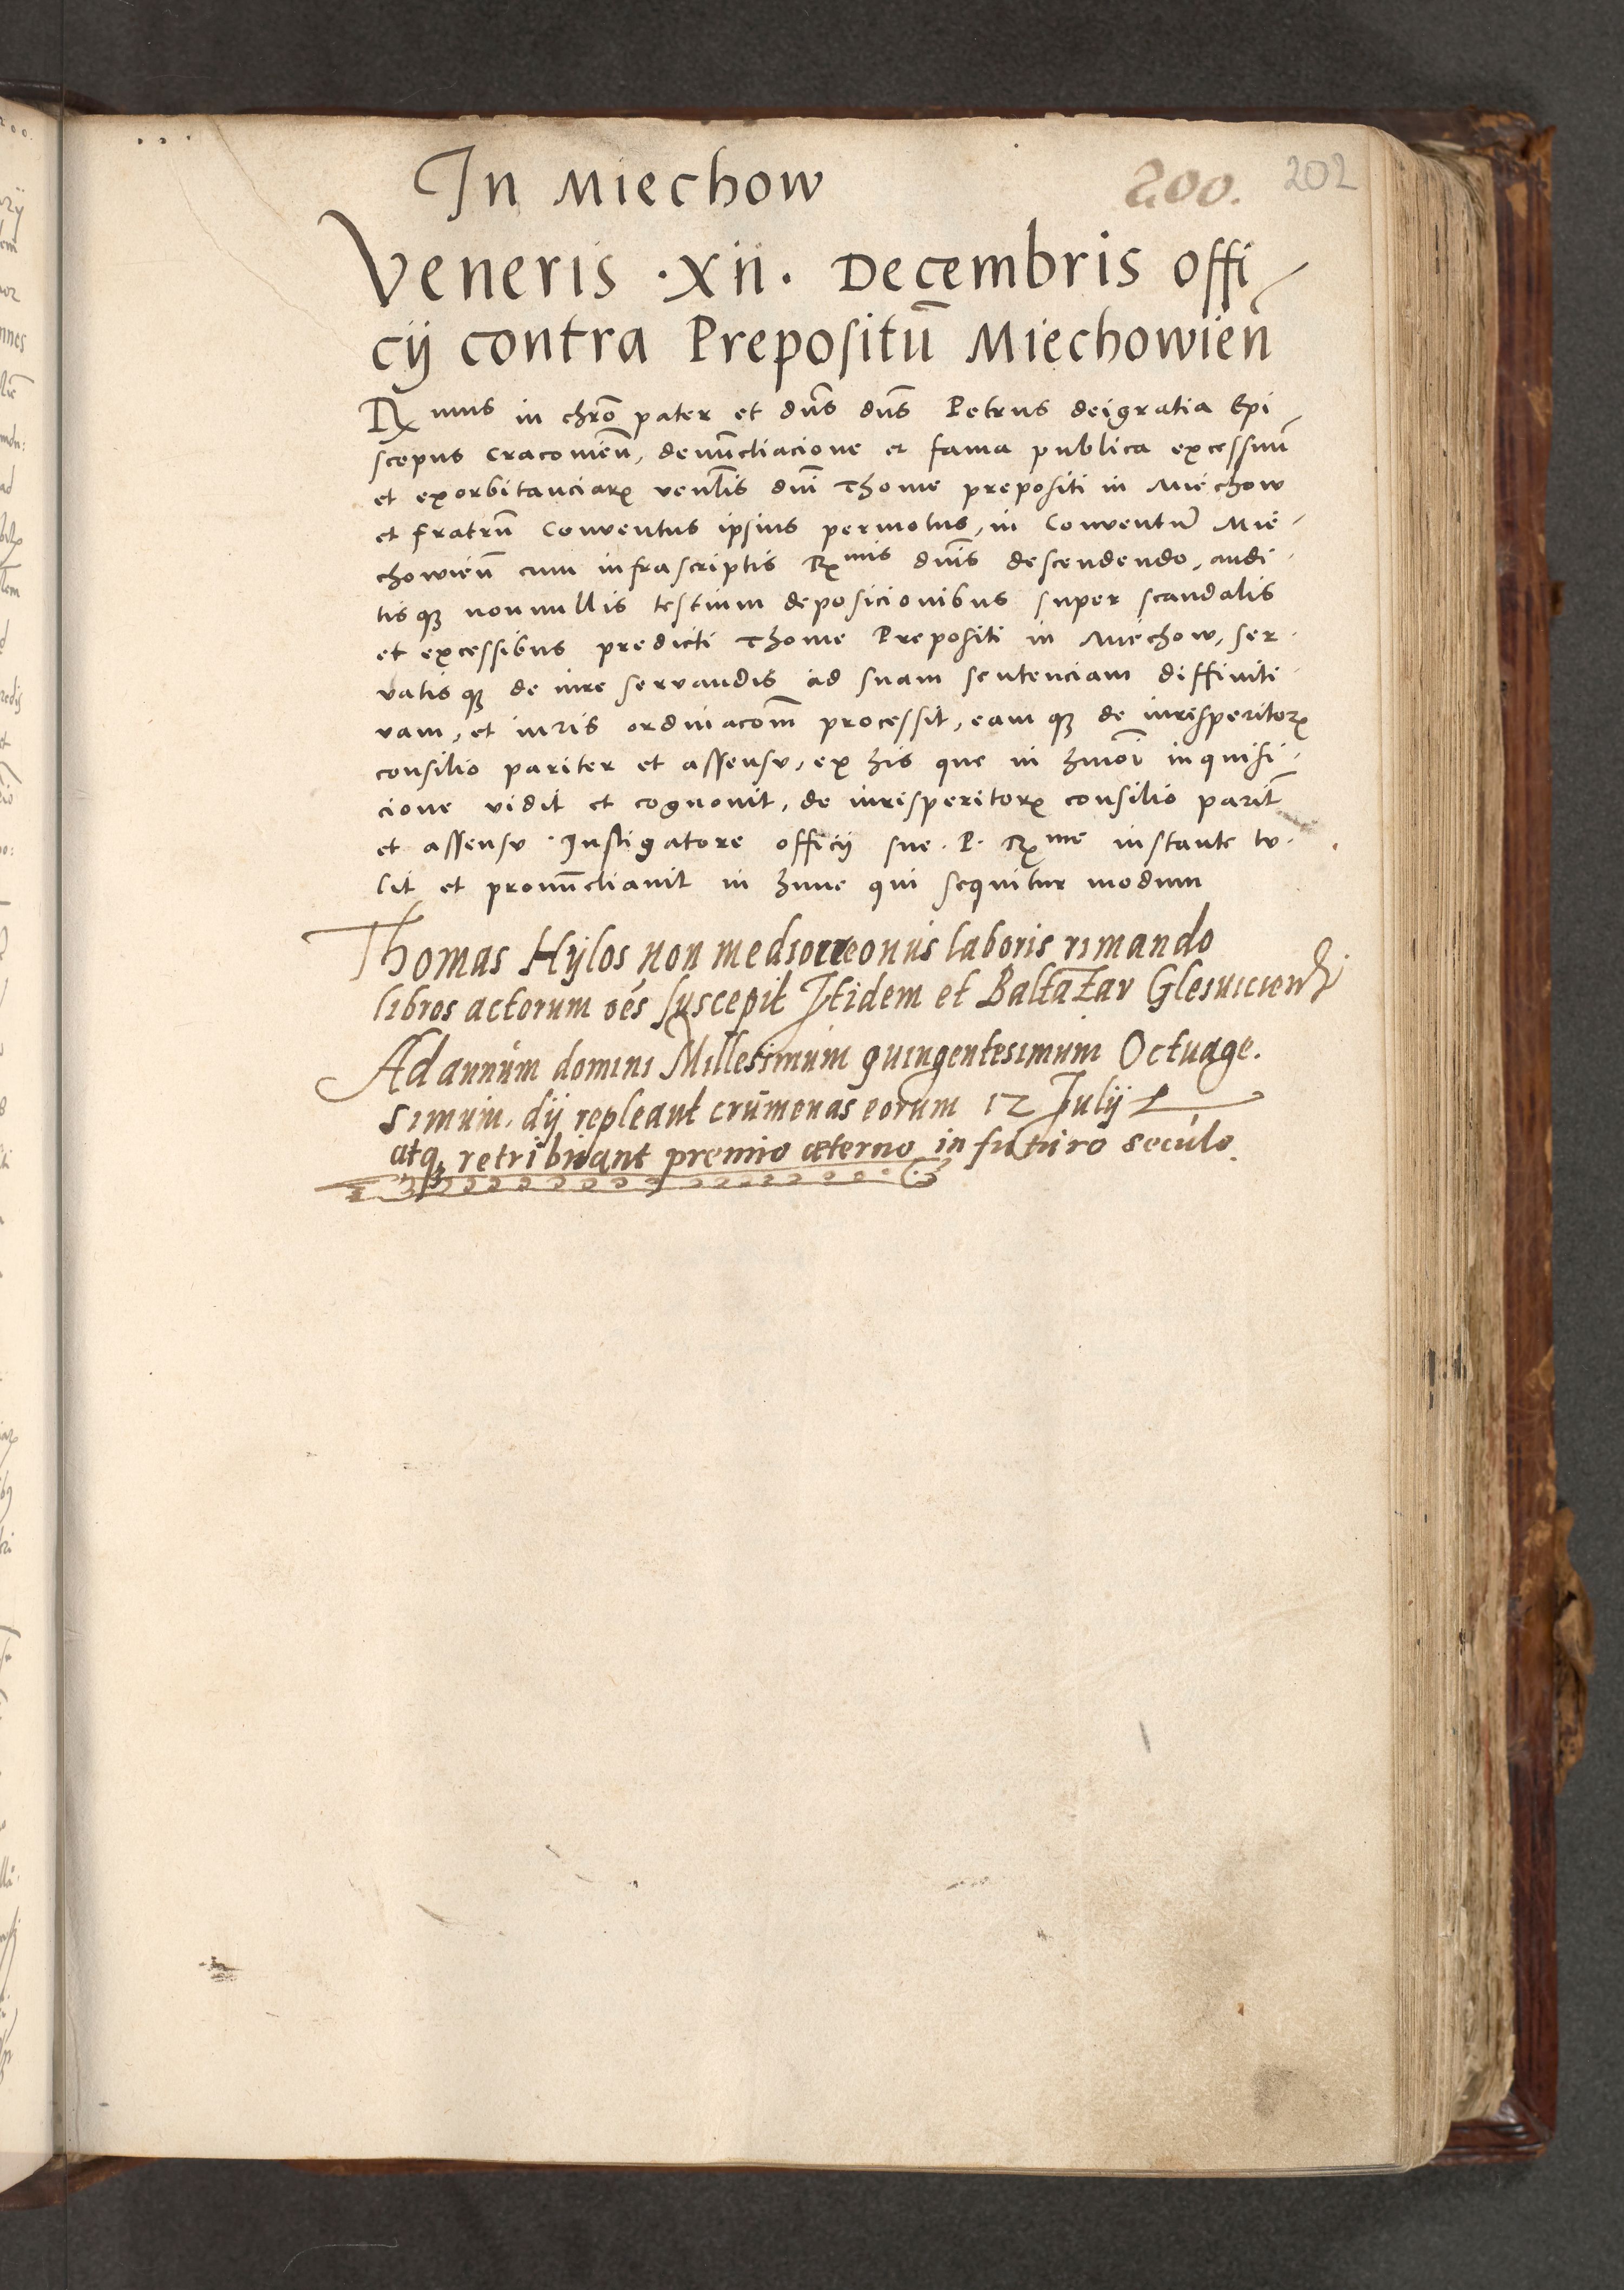 In Miechow
200. 202
Veneris .xii. Decembris offi
cij contra Prepositū Miechowien̄
Rmus in chro̅ pater et dn̅s dn̅s Petrus deigratia Epi
scopus Cracovien̅, denun̅cliacione et fama publica excessuu̅
et exorbitanciarꝝ ven̅lis dn̅i Thome prepositi in Miechow
et fratru̅ Conventus ipsius permotus, in Conventu̅ Mie
chowien̅ cum infrascriptis Rmis dn̅is descendendo, audi
tisqꝫ nonnullis testium deposicionibus super scandalis
et excessibus predicti Thome Prepositi in Miechow, ser
vatisqꝫ de iure servandis ad suam sentenciam diffiniti
vam, et iuris ordinaco̅m processit, eamqꝫ de iurisperitorꝝ
consilio pariter et assensu, ex his que in hmo̅i inquisi
cione vidit et cognovit, de iurisperitorꝝ consilio parit̅
et assensu Instigatore officij sue. P. Rme instante tu
lit et pronun̅cliavit in hunc qui sequitur modum
Thomas Hÿlos non mediocre onus laboris rimando
libros actorum oe̅s suscepit Itidem et Baltazar Glesuicien
Ad annum domini Millesimum quingentesimum Octuage.
simum. dij repleant crumenas eorum 12 Julij
atqꝫ retribuant premio æterno in futuro seculo.